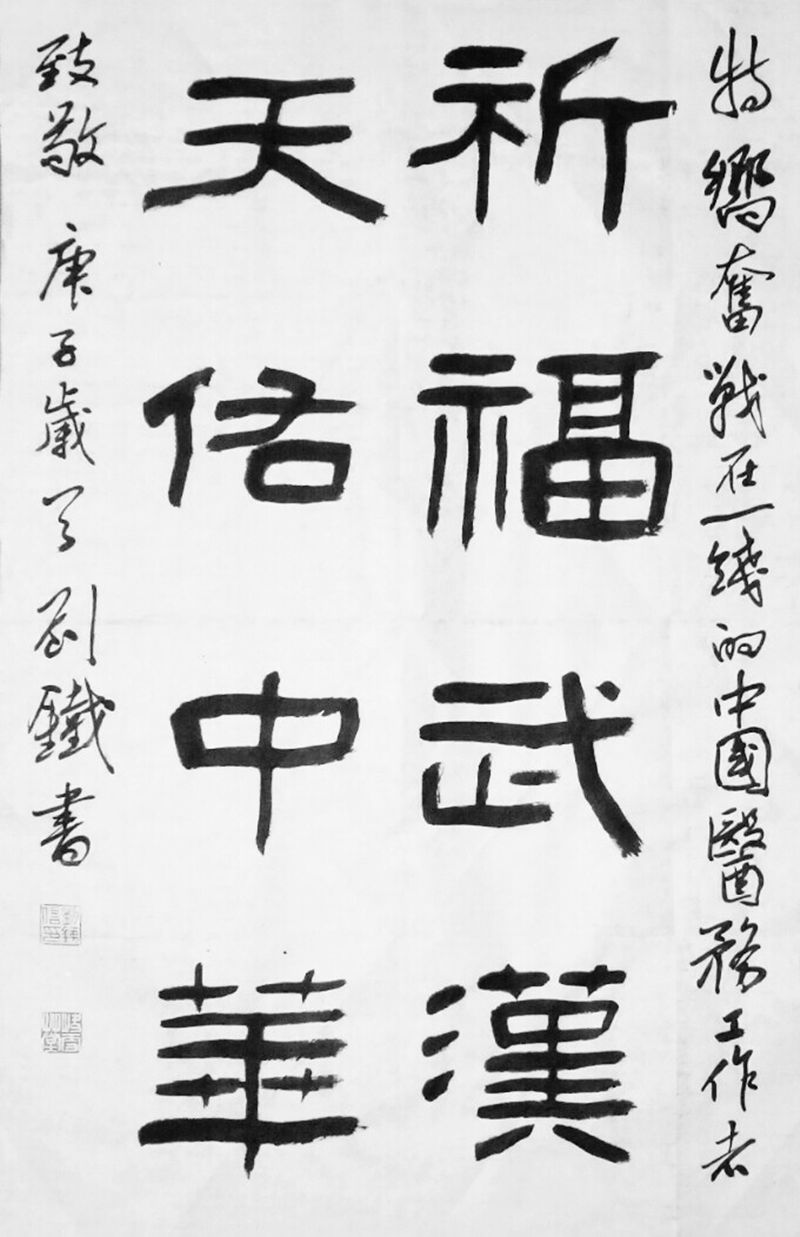 特嚮奮戰在一綫的中國醫務工作者
祈福武漢
天佑中華
致敬 庚子歲 劉鐵書